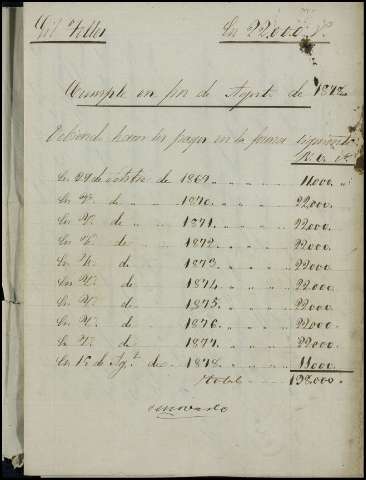 Gil Toller En 22.000 rs
Cumple en fin de Agosto de 1878
Debiendo hacer los pagos en la forma siguiente
R.s v.n
En 29 de octubre de 1869 11.000 "
En Y. de " 1870 22000.
En Y. de " 1871. 22000.
En Y. de 1872. 22000.
En Y. de 1873. 22000.
En Y. de 1874 22.000.
En Y. de 1875. 22000.
En Y. de 1876. 22000.
En Y. de 1877. 22000.
En 15 de Ag.to de 1878. 11000.
Total 198.000.
renovado